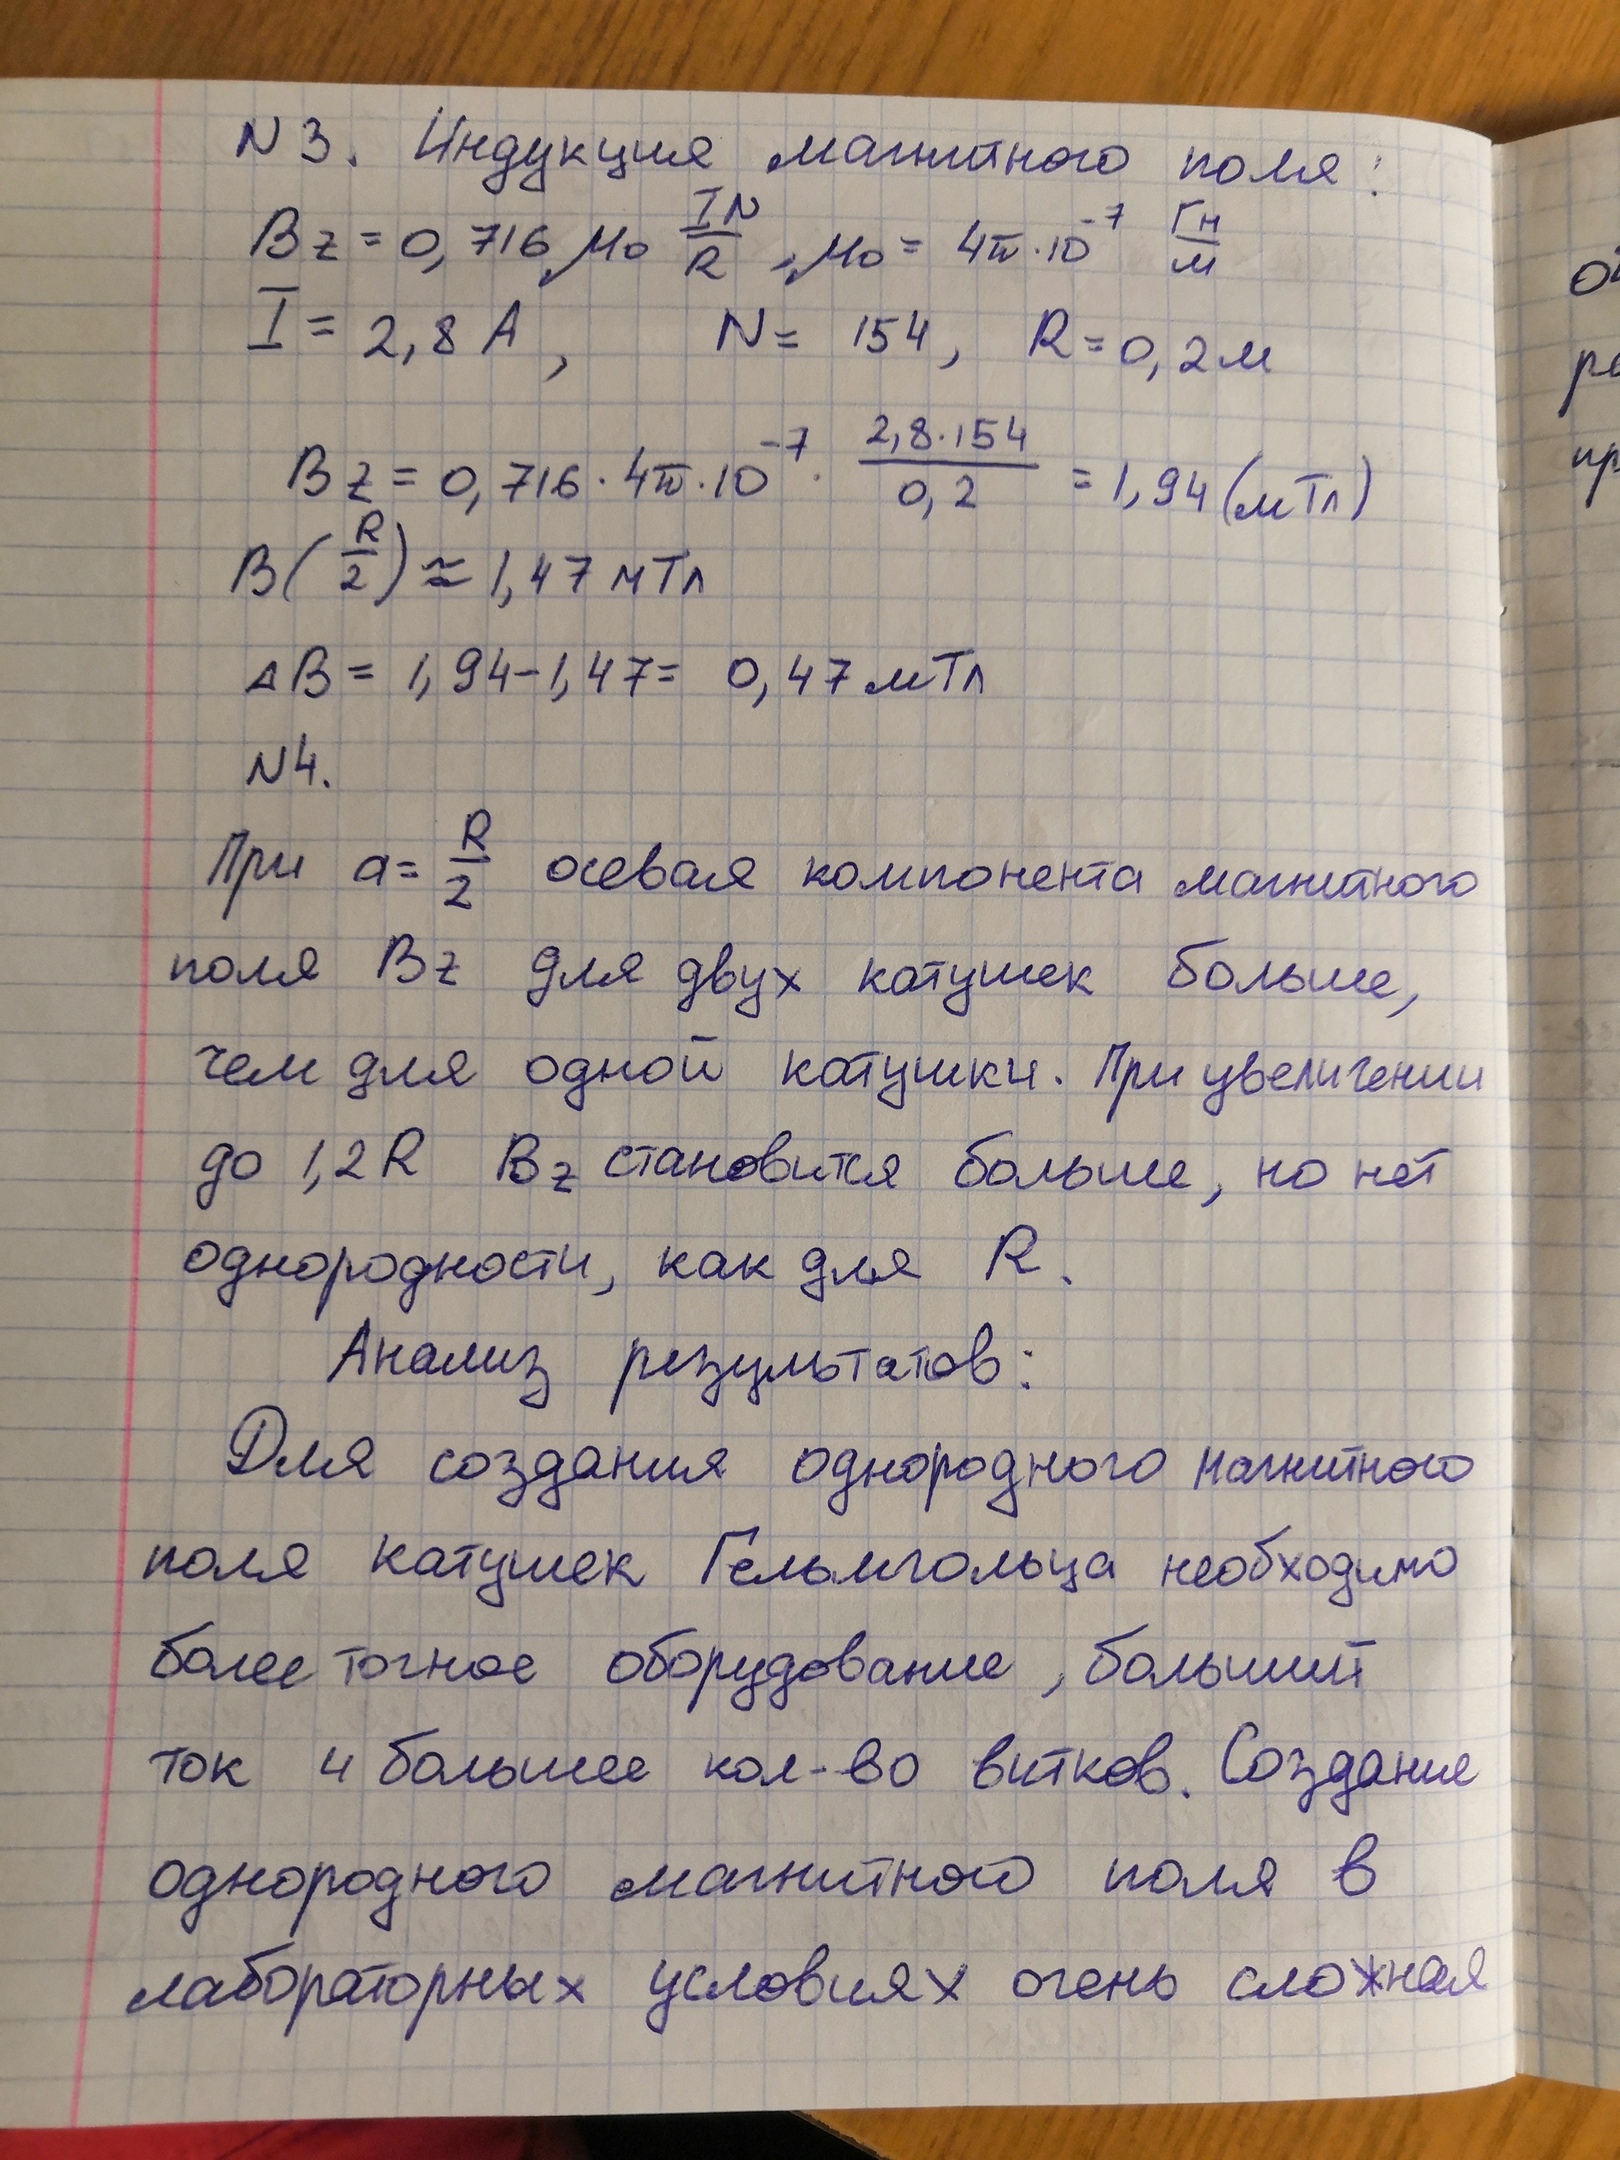 N 3. Индукция магнитного поля:
Bz = 0,716 μ0 IN/R, μ0 = 4π·10⁻⁷ Гн/м
I = 2,8 А, N = 154, R = 0,2 м
Bz = 0,716 · 4π · 10⁻⁷ · 2,8·154/0,2 = 1,94 (мТл)
B(R/2) ≈ 1,47 мТл
ΔB = 1,94 - 1,47 = 0,47 мТл
N4.
При a = R/2 осевая компонента магнитного
поля Bz для двух катушек больше,
чем для одной катушки. При увеличении
до 1,2R Bz становится больше, но нет
однородности, как для R.
Анализ результатов:
Для создания однородного магнитного
поля катушек Гельмгольца необходимо
более точное оборудование, больший
ток и большее кол-во витков. Создание
однородного магнитного поля в
лабораторных условиях очень сложная